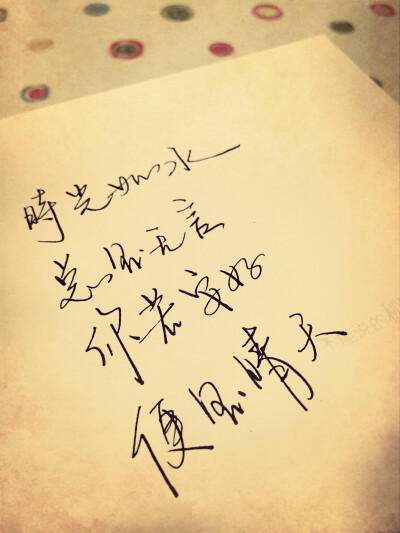 時光如水
总是无言
你若安好
便是晴天